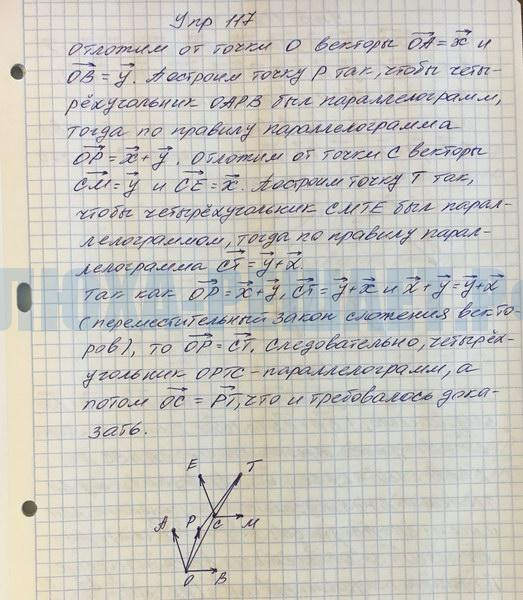 Упр 117
Отложим от точки О векторы OA = x и
OB = y. Достроим точку Р так, чтобы четы-
рёхугольник ОАРВ был параллелограмм,
тогда по правилу параллелограмма
OP = x + y. Отложим от точки С векторы
CM = y и CE = x. Достроим точку Т так,
чтобы четырёхугольник СМТЕ был парал-
лелограммом, тогда по правилу парал-
лелограмма CT = y + x.
Так как OP = x + y, CT = y + x и x + y = y + x
(переместительный закон сложения векто-
ров), то OP = CT. Следовательно, четырёх-
угольник ОРТС - параллелограмм, а
потом OC = PT, что и требовалось дока-
зать.
E T
A P C M
O B